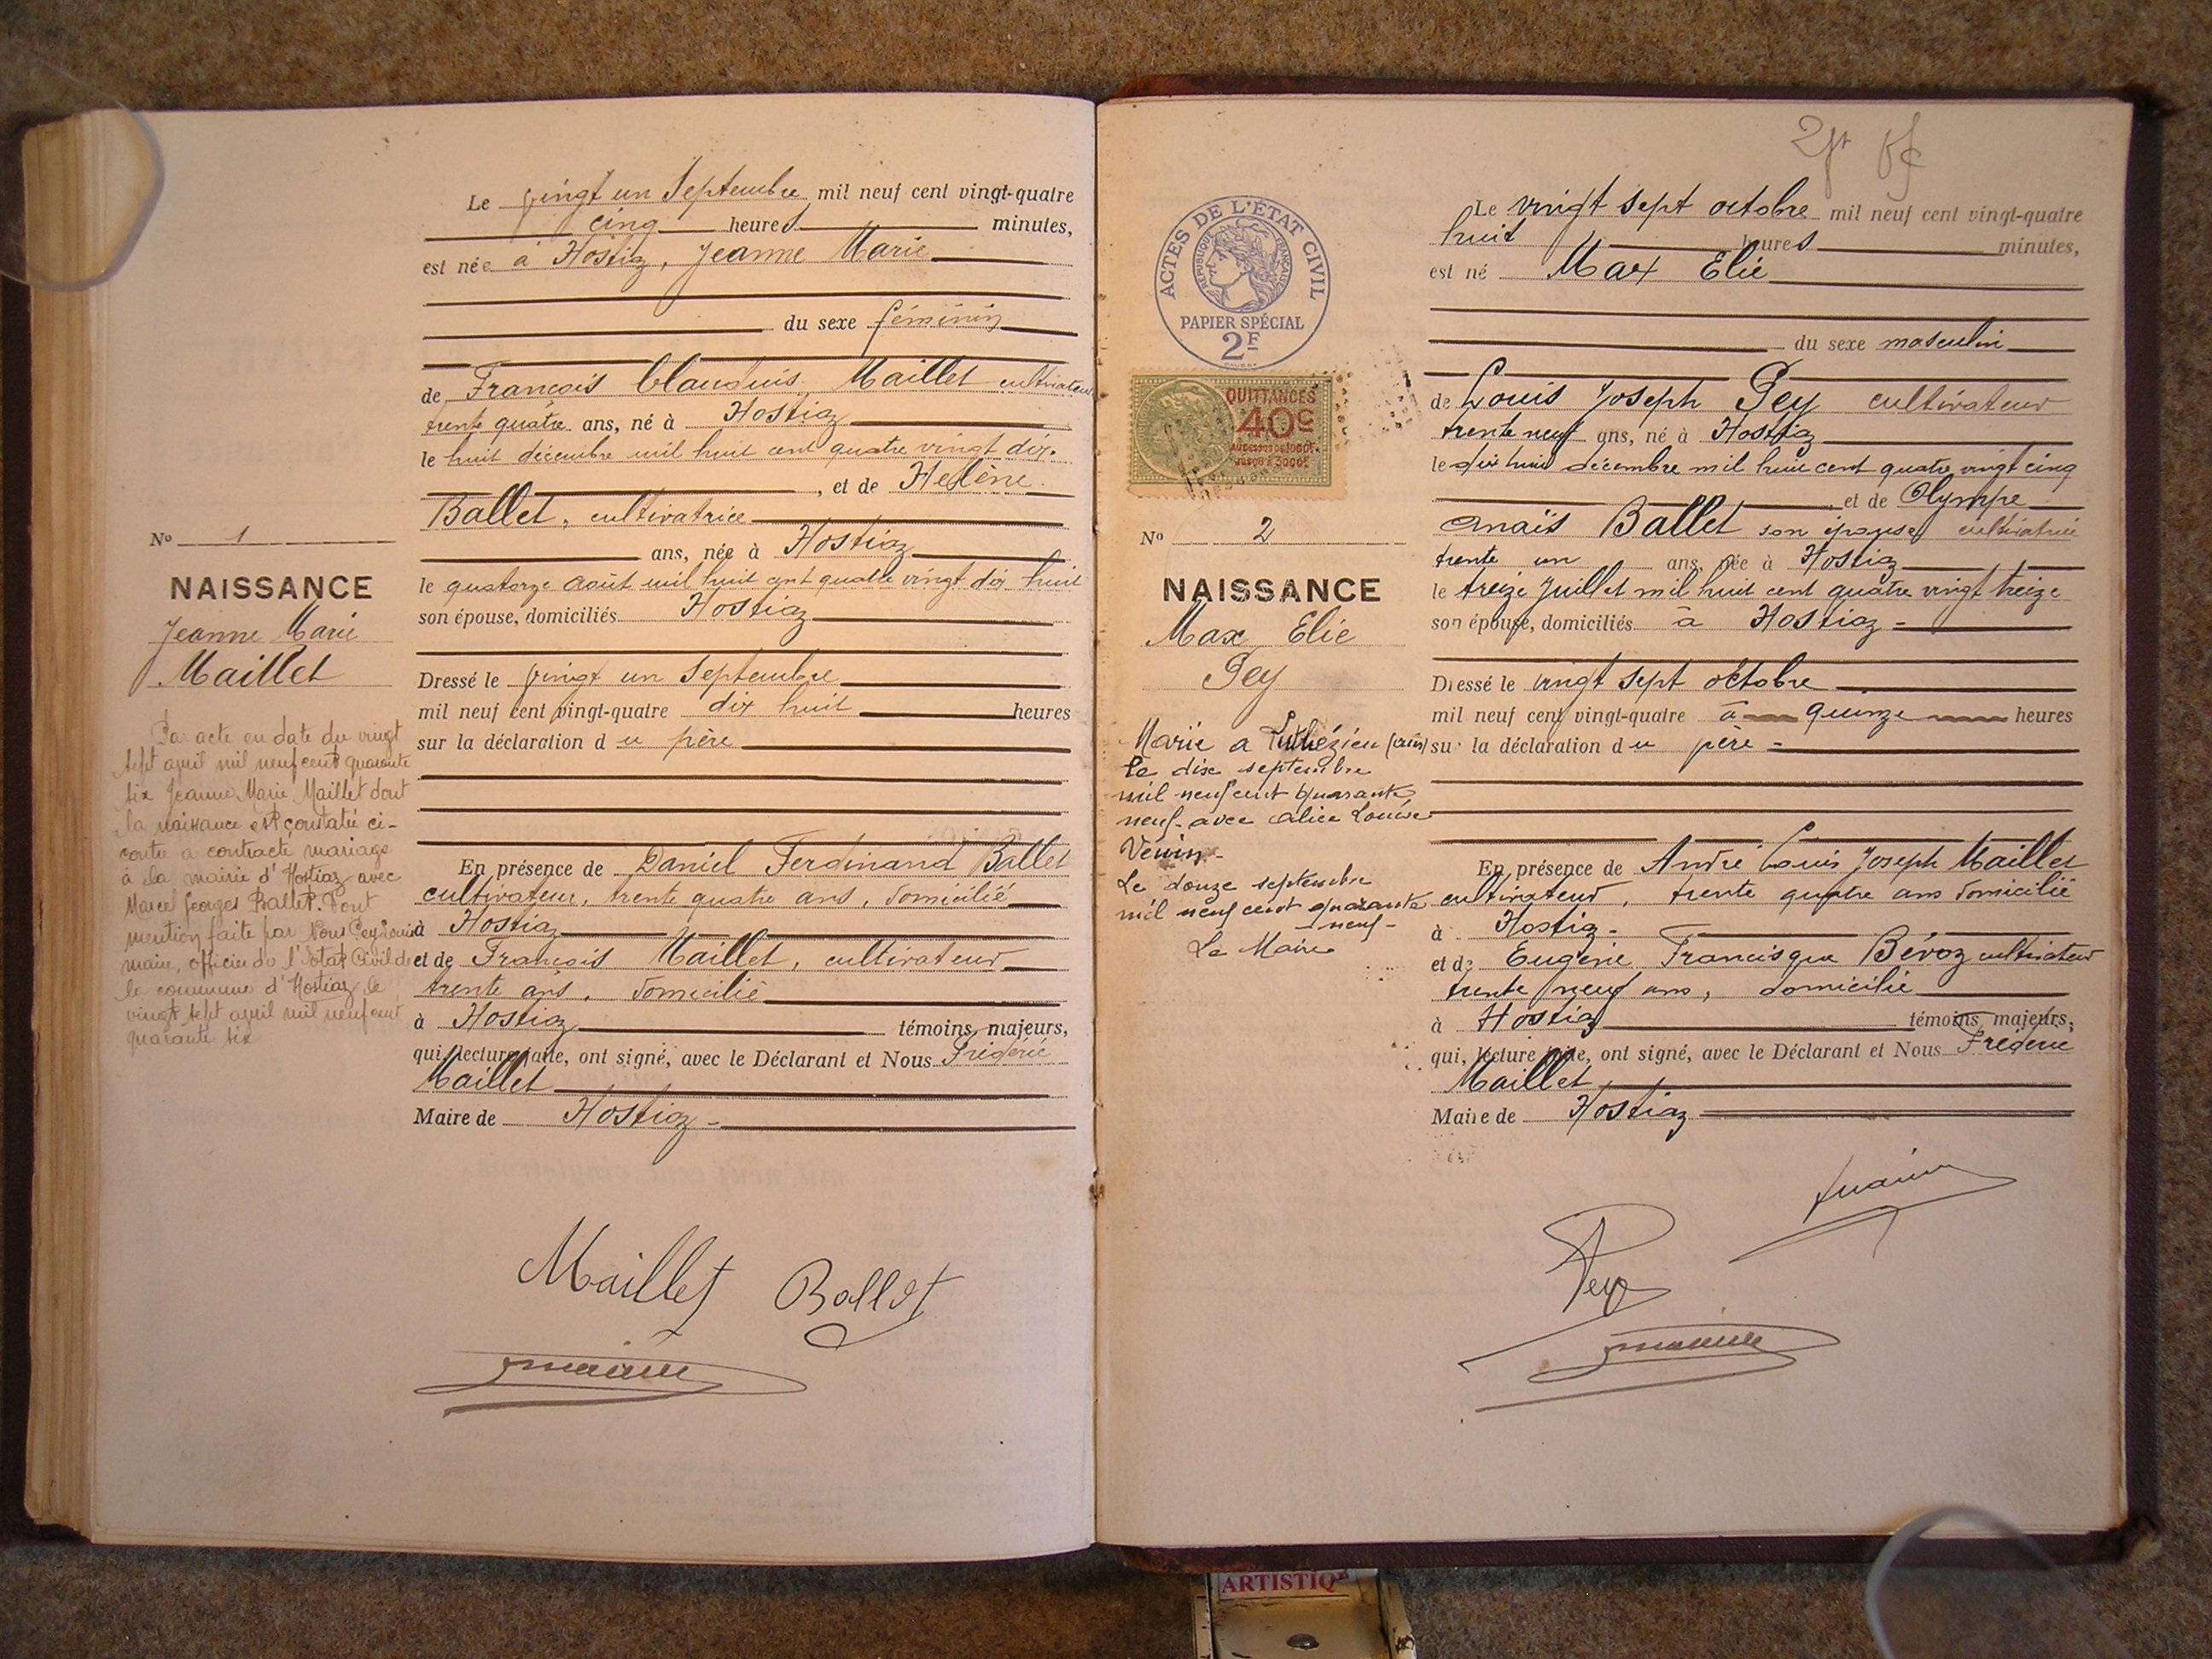 Le vingt un Septembre mil neuf cent vingt-quatre
cinq heures minutes,
est née à Hostiaz, Jeanne Marie
du sexe féminin
de François Claudius Maillet cultivateur
trente quatre ans, né à Hostiaz
le huit décembre mil huit cent quatre vingt dix.
, et de Helène
Ballet, cultivatrice
ans, née à Hostiaz
le quatorze août mil huit cent quatre vingt dix huit
son épouse, domiciliés Hostiaz
Dressé le vingt un Septembre
mil neuf cent vingt-quatre dix huit heures
sur la déclaration du père
En présence de Daniel Ferdinand Ballet
cultivateur, trente quatre ans, domicilié
à Hostiaz
et de François Maillet, cultivateur
trente ans, domicilié
à Hostiaz témoins majeurs,
qui, lecture faite, ont signé, avec le Déclarant et Nous Fréderic
Maillet
Maire de Hostiaz -
Maillet Ballet
No 1
NAISSANCE
Jeanne Marie
Maillet
Par acte en date du vingt
sept avril mil neuf cent quarante
six Jeanne Marie Maillet dont
la naissance est constatée ci-
contre a contracté mariage
à la mairie d'Hostiaz avec
Marcel Georges Ballet. Dont
mention faite par Nous Pey Louis
maire, officier de l'Etat Civil de
la commune d'Hostiaz le
vingt sept avril mil neuf cent
quarante six
ACTES DE L'ÉTAT CIVIL
RÉPUBLIQUE FRANÇAISE
PAPIER SPÉCIAL
2F
QUITTANCES
40c
AU DESSUS DE 1000F
JUSQU'À 3000F
No 2
NAISSANCE
Max Elie
Pey
Marié à Luthézieu (Ain)
le dix septembre
mil neuf cent quarante
neuf avec Alice Louise
Venin -
Le douze septembre
mil neuf cent quarante
neuf -
Le Maire
Le vingt sept octobre mil neuf cent vingt-quatre
huit heures minutes,
est né Max Elie
du sexe masculin
de Louis Joseph Pey cultivateur
trente neuf ans, né à Hostiaz
le dix huit décembre mil huit cent quatre vingt cinq
et de Olympe
Anaïs Ballet son épouse cultivatrice
trente un ans, née à Hostiaz
le treize Juillet mil huit cent quatre vingt treize
son épouse, domiciliés à Hostiaz -
Dressé le vingt sept octobre
mil neuf cent vingt-quatre à quinze heures
sur la déclaration du père -
En présence de André Louis Joseph Maillet
cultivateur, trente quatre ans domicilié
à Hostiaz -
et de Eugène Francisque Bévoz cultivateur
trente neuf ans, domicilié
à Hostiaz témoins majeurs,
qui, lecture faite, ont signé, avec le Déclarant et Nous Fréderic
Maillet
Maire de Hostiaz
Pey
ARTISTIQ